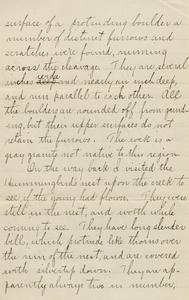 surface of a protruding boulder a
number of distinct furrows and
scratches were found, running
across the cleavage. They are several
inches long and nearly an inch deep,
and run parallel to each other. All
the boulders are rounded off from grind-
ing, but their upper surfaces do not
retain the furrows. The rock is a
gray granite not native to this region.
On the way back I visited the
Hummingbirds nest upon the creek to
see if the young had flown. They were
still in the nest, and worth while
coming to see. They have long slender
bill, which protrude like thorns over
the rim of the nest, and are covered
with silvery down. They are ap-
parently always two in number,